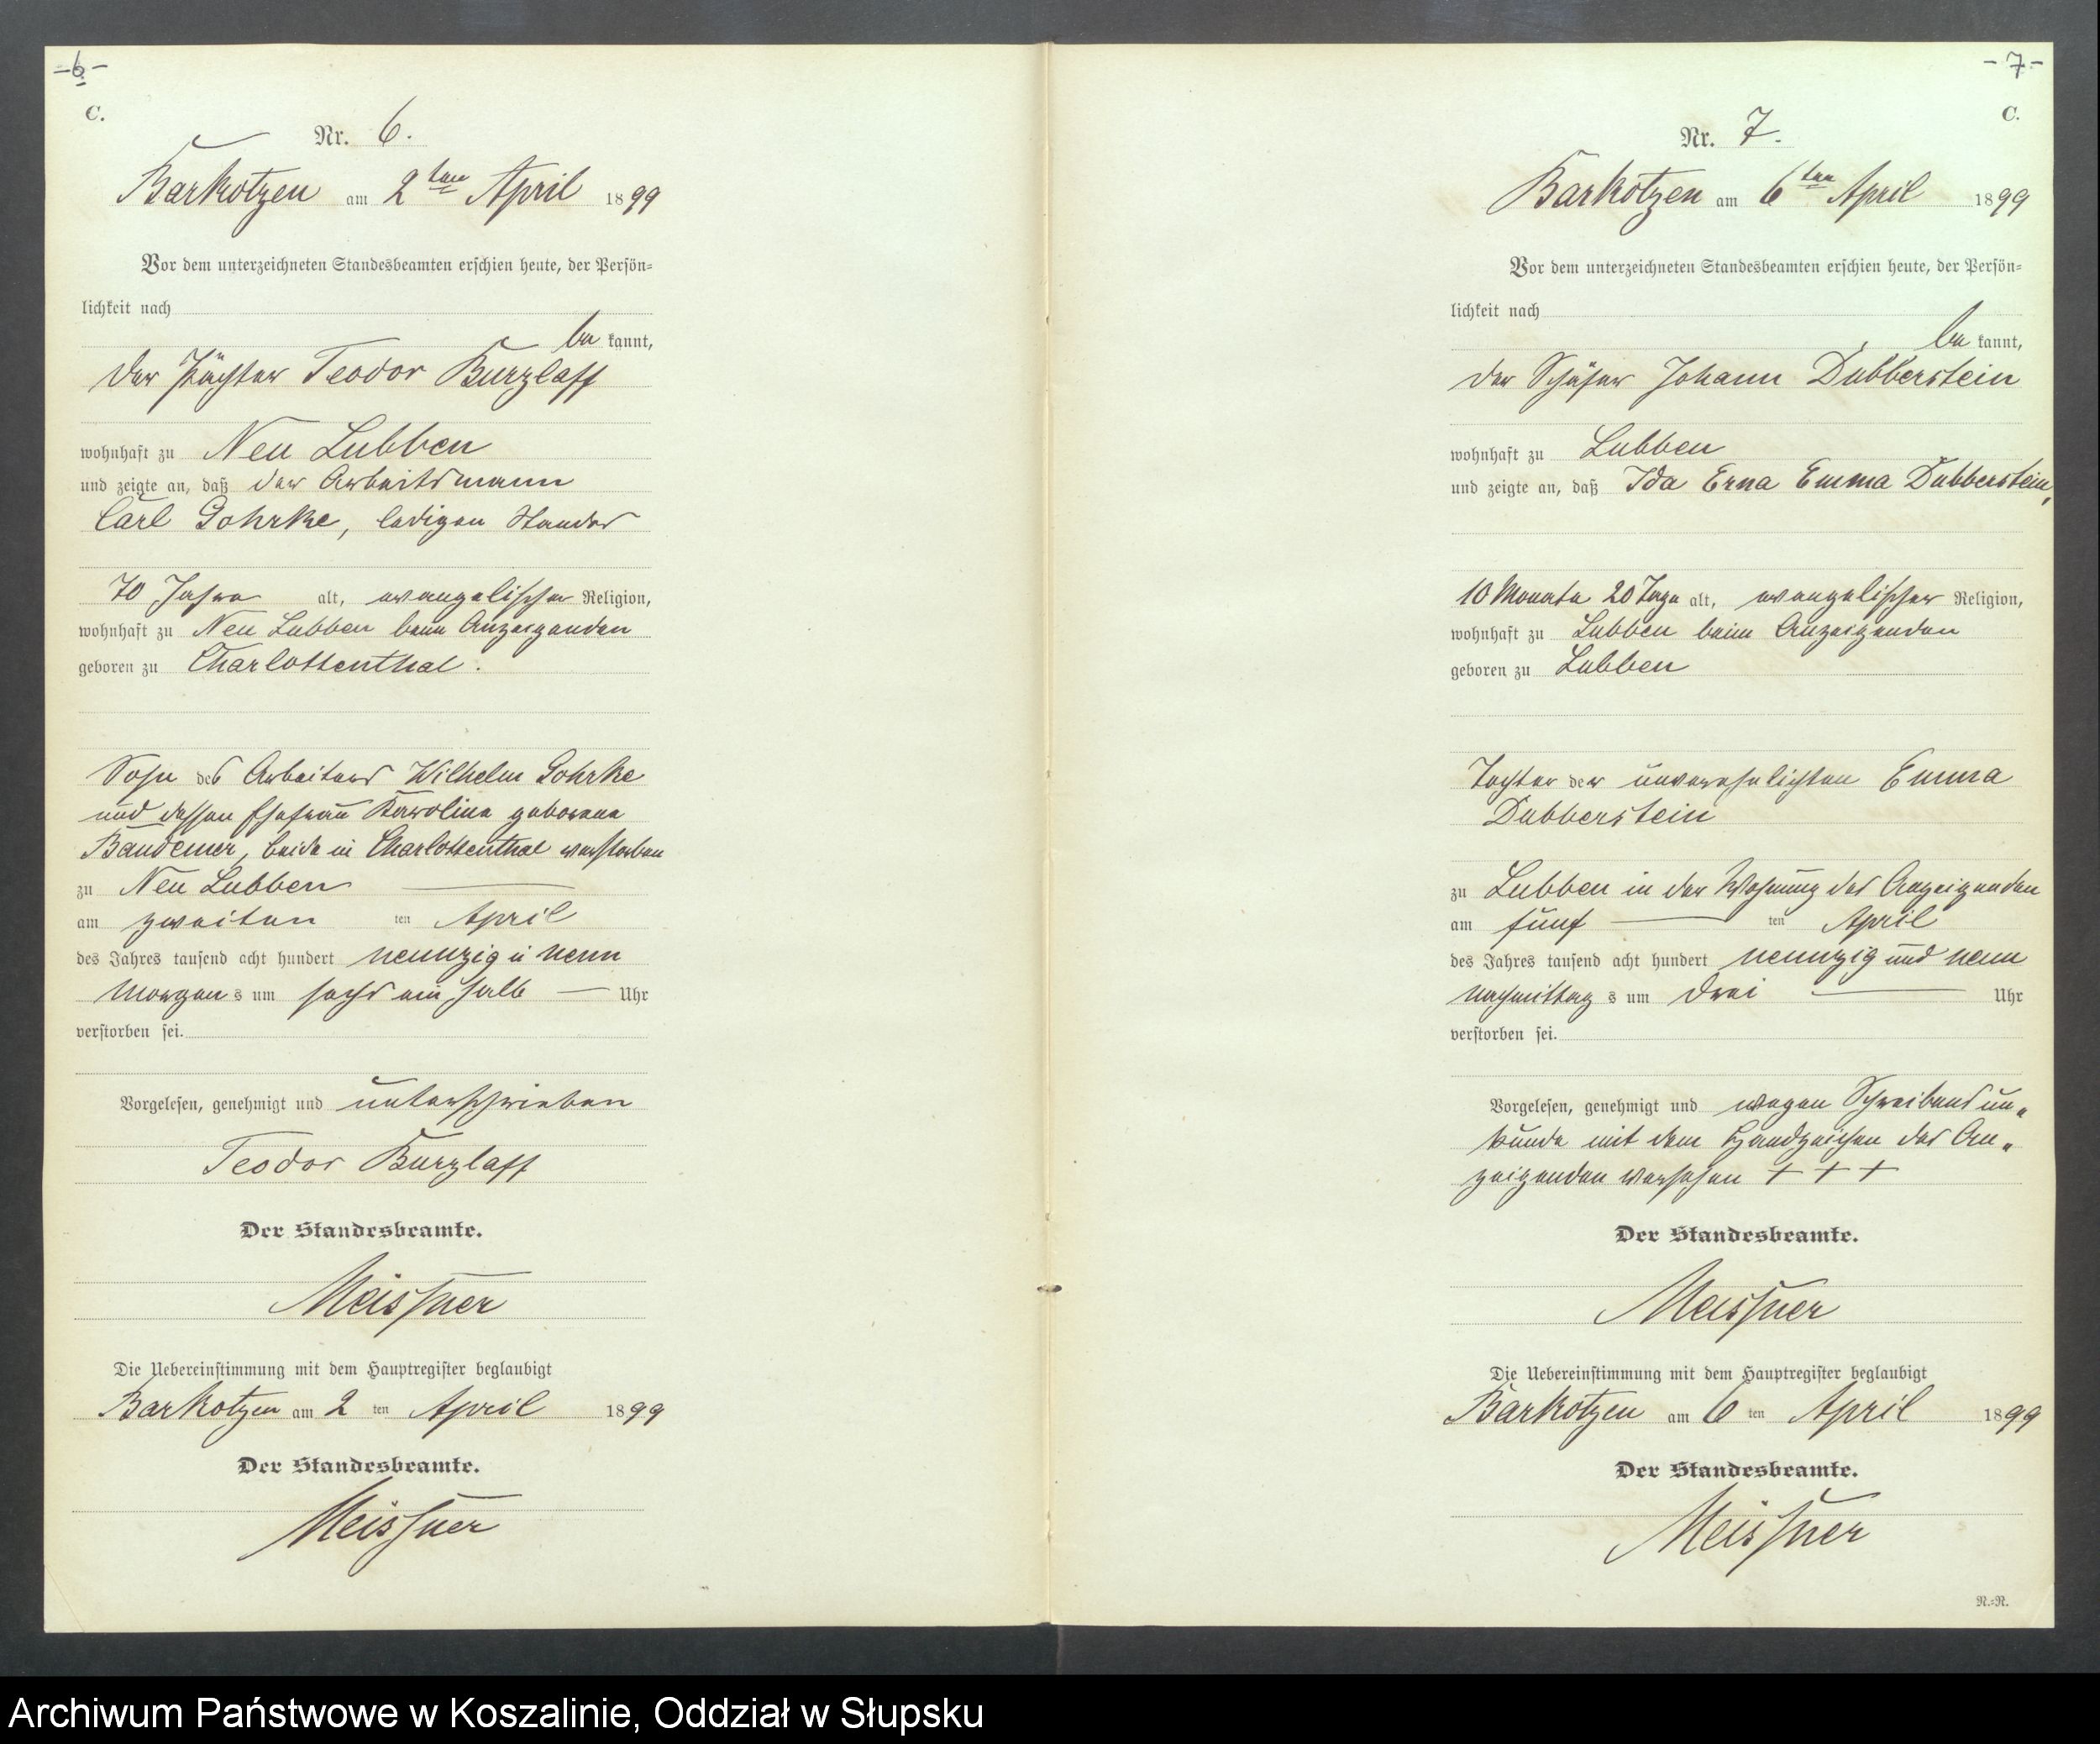 -6-
C.
Nr. 6.
Barkotzen am 2ten April 1899
Vor dem unterzeichneten Standesbeamten erschien heute, der Persön-
lichkeit nach
be kannt,
der Pächter Teodor Burzlaff
wohnhaft zu Neu Lubben
und zeigte an, daß der Arbeitsmann
Carl Gohrke, ledigen Standes
70 Jahre alt, evangelischer Religion,
wohnhaft zu Neu Lubben beim Anzeigenden
geboren zu Charlottenthal.
Sohn des Arbeiters Wilhelm Gohrke
und dessen Ehefrau Karoline geborene
Bandemer, beide in Charlottenthal verstorben
zu Neu Lubben
am zweiten ten April
des Jahres tausend acht hundert neunzig u neun
Morgens um sechs ein halb Uhr
verstorben sei.
Vorgelesen, genehmigt und unterschrieben
Teodor Burzlaff
Der Standesbeamte.
Meissner
Die Uebereinstimmung mit dem Hauptregister beglaubigt
Barkotzen am 2 ten April 1899
Der Standesbeamte.
Meissner
-7-
C.
Nr. 7.
Barkotzen am 6ten April 1899
Vor dem unterzeichneten Standesbeamten erschien heute, der Persön-
lichkeit nach
be kannt,
der Schäfer Johann Dubberstein
wohnhaft zu Lubben
und zeigte an, daß Ida Erna Emma Dubberstein,
10 Monate 20 Tage alt, evangelischer Religion,
wohnhaft zu Lubben beim Anzeigenden
geboren zu Lubben
Tochter der unverehelichten Emma
Dubberstein
zu Lubben in der Wohnung des Anzeigenden
am fünf ten April
des Jahres tausend acht hundert neunzig und neun
Nachmittags um drei Uhr
verstorben sei.
Vorgelesen, genehmigt und wegen Schreibens un-
kunde mit dem Handzeichen des An-
zeigenden versehen + + +
Der Standesbeamte.
Meissner
Die Uebereinstimmung mit dem Hauptregister beglaubigt
Barkotzen am 6 ten April 1899
Der Standesbeamte.
Meissner
N.=N.
Archiwum Państwowe w Koszalinie, Oddział w Słupsku